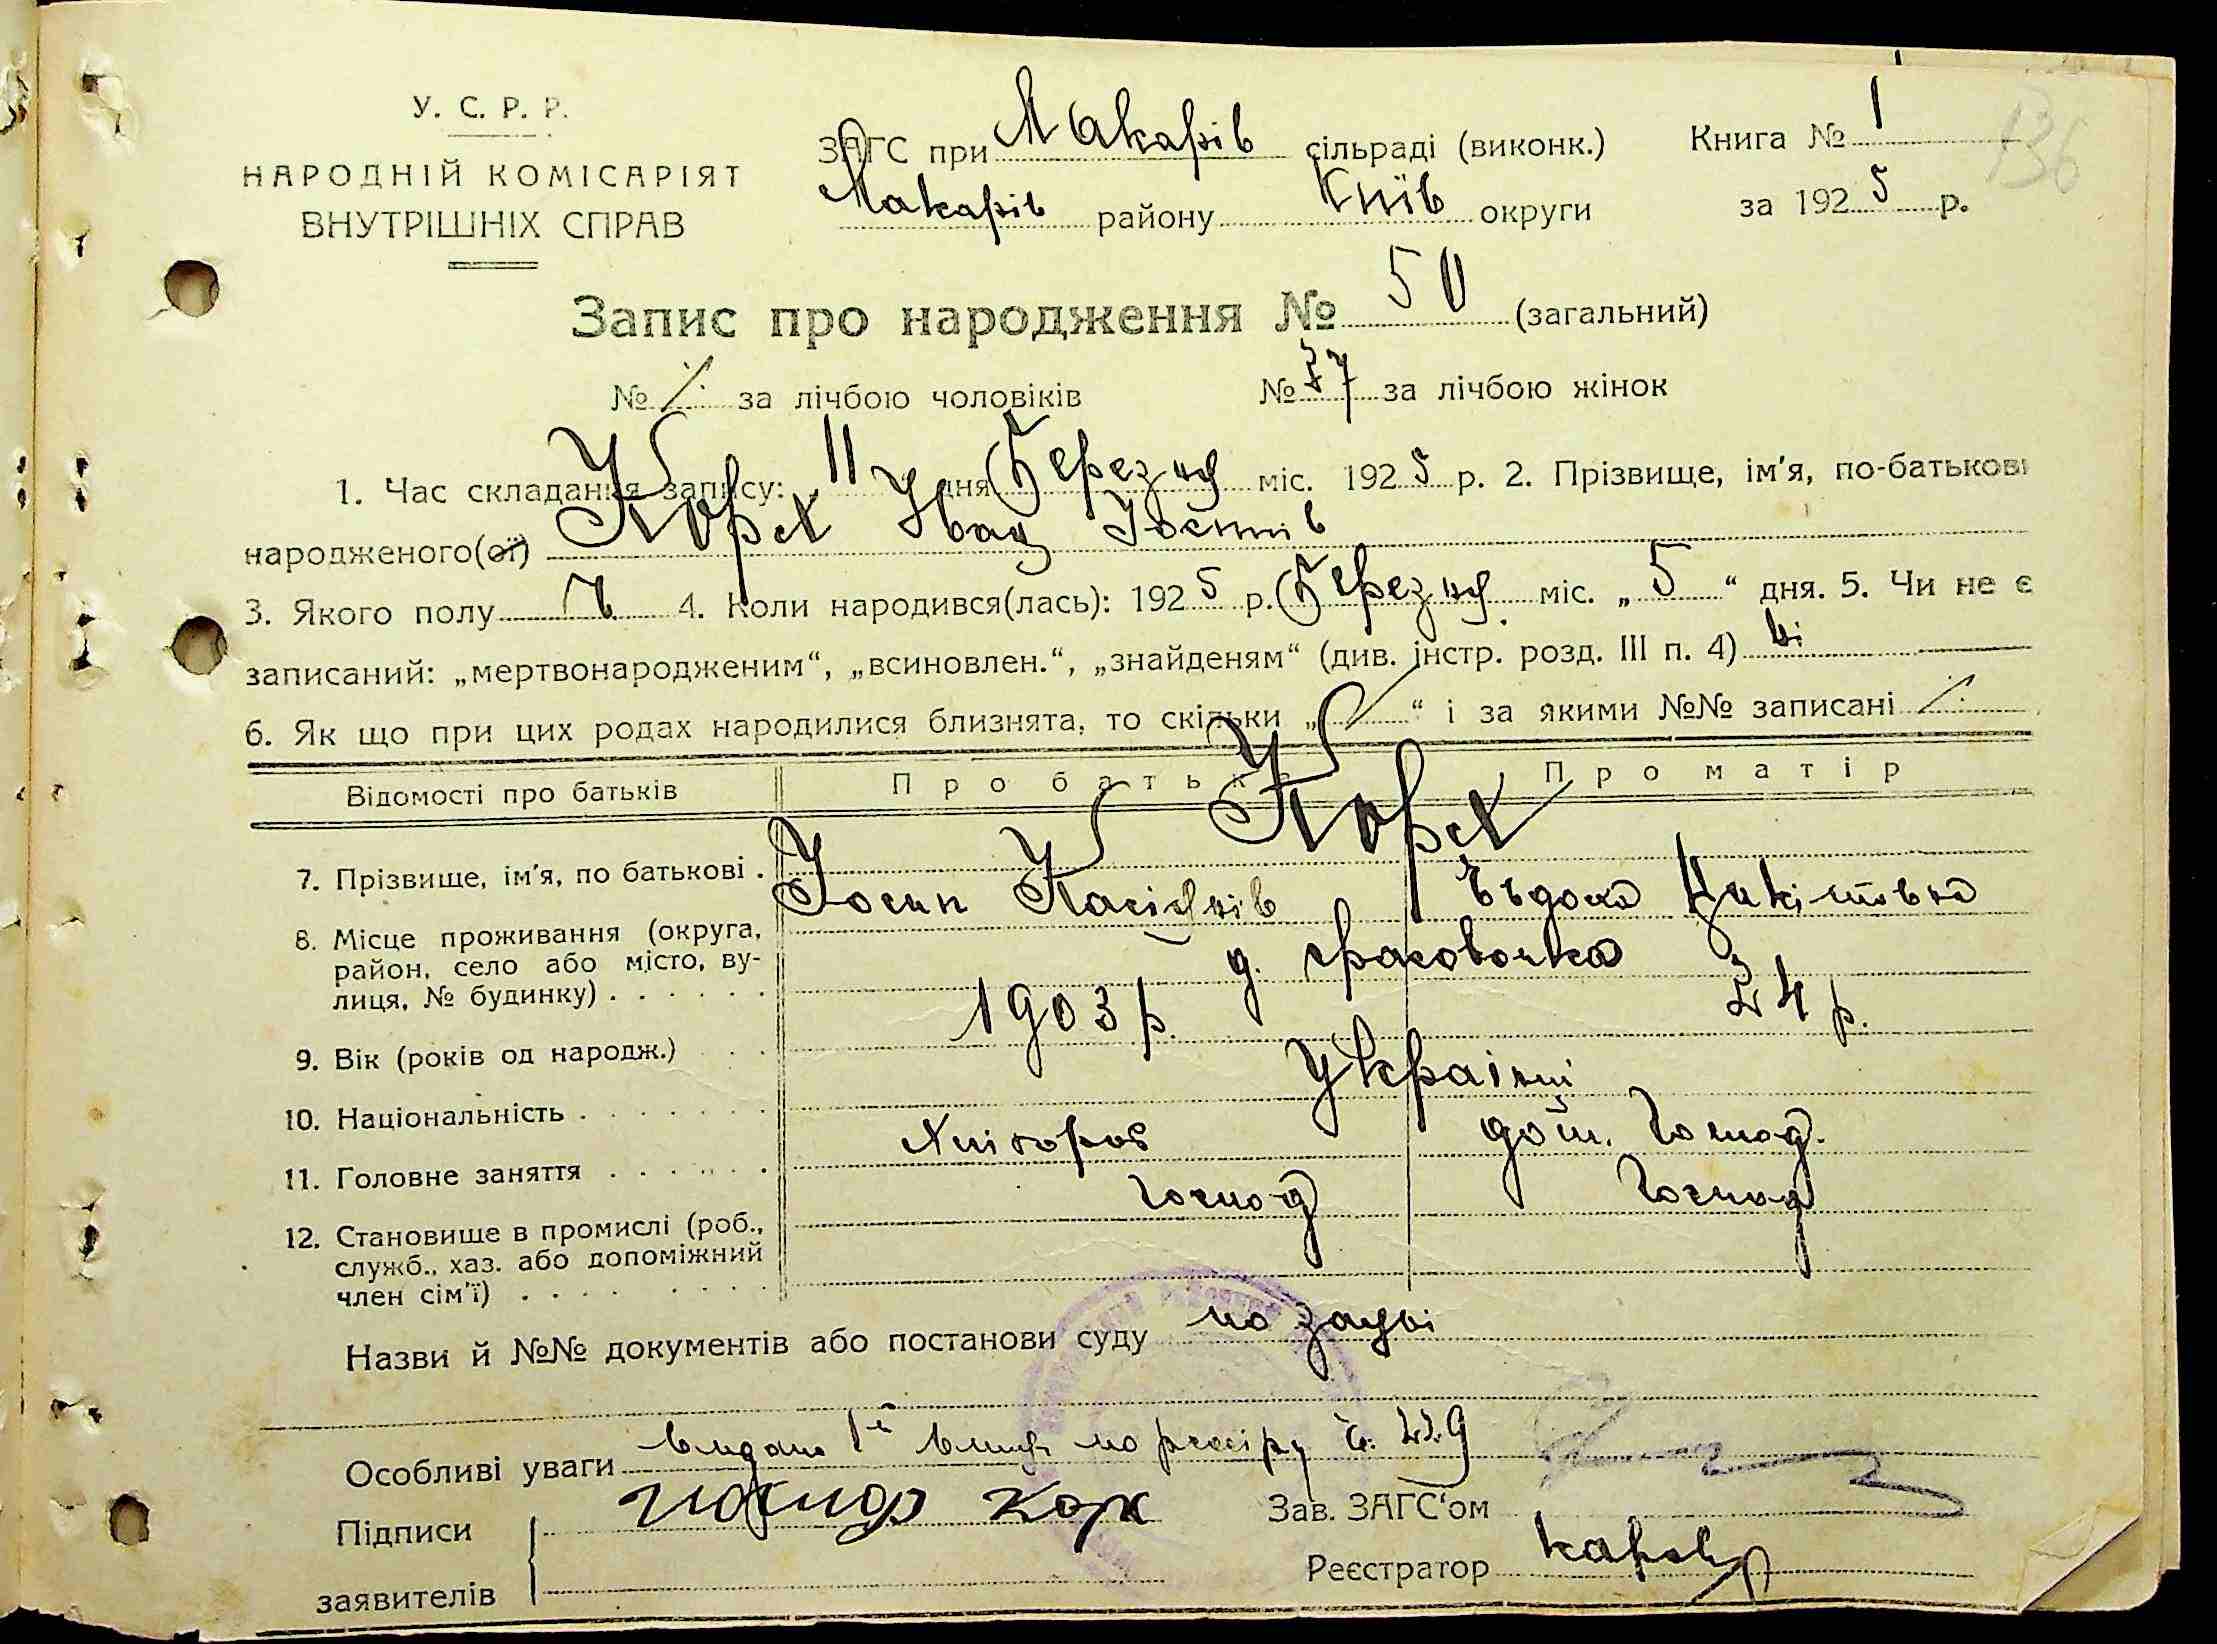 136
У. С. Р. Р.
НАРОДНІЙ КОМІСАРІЯТ
ВНУТРІШНІХ СПРАВ
ЗАГС при Макарів сільраді (виконк.) Книга № 1
Макарів району Київ округи за 1925 р.
Запис про народження № 50 (загальний)
№ ∕. за лічбою чоловіків № за лічбою жінок
1. Час складання запису: 11 дня березня міс. 1925 р. 2. Прізвище, ім'я, по-батькові
народженого(ої) Корх Йосипів
3. Якого полу 4. Коли народився(лась): 1925 р. березня міс. „5“ дня. 5. Чи не є
записаний: „мертвонародженим“, „всиновлен.“, „знайденям“ (див. інстр. розд. III п. 4) ні
6. Як що при цих родах народилися близнята, то скільки „ “ і за якими №№ записані ∕.
Відомості про батьків Про батька Про матір
Корх
7. Прізвище, ім'я, по батькові . Йосип Касіянів Євдоха Микитівна
8. Місце проживання (округа,
район, село або місто, ву-
лиця, № будинку) . . . . . . д.
9. Вік (років од народж.) . . . 1903 р. 24 р.
10. Національність . . . . . . . Українці
11. Головне заняття . . . . . . . Хлібороб дом. господ.
12. Становище в промислі (роб.,
служб., хаз. або допоміжний
член сім'ї) . . . . . . . . . господ господ
Назви й №№ документів або постанови суду по заяві
Особливі уваги видано 1й витяг по реєстру ч. 229
Підписи Иосиф Корх Зав. ЗАГС'ом
заявителів Реєстратор